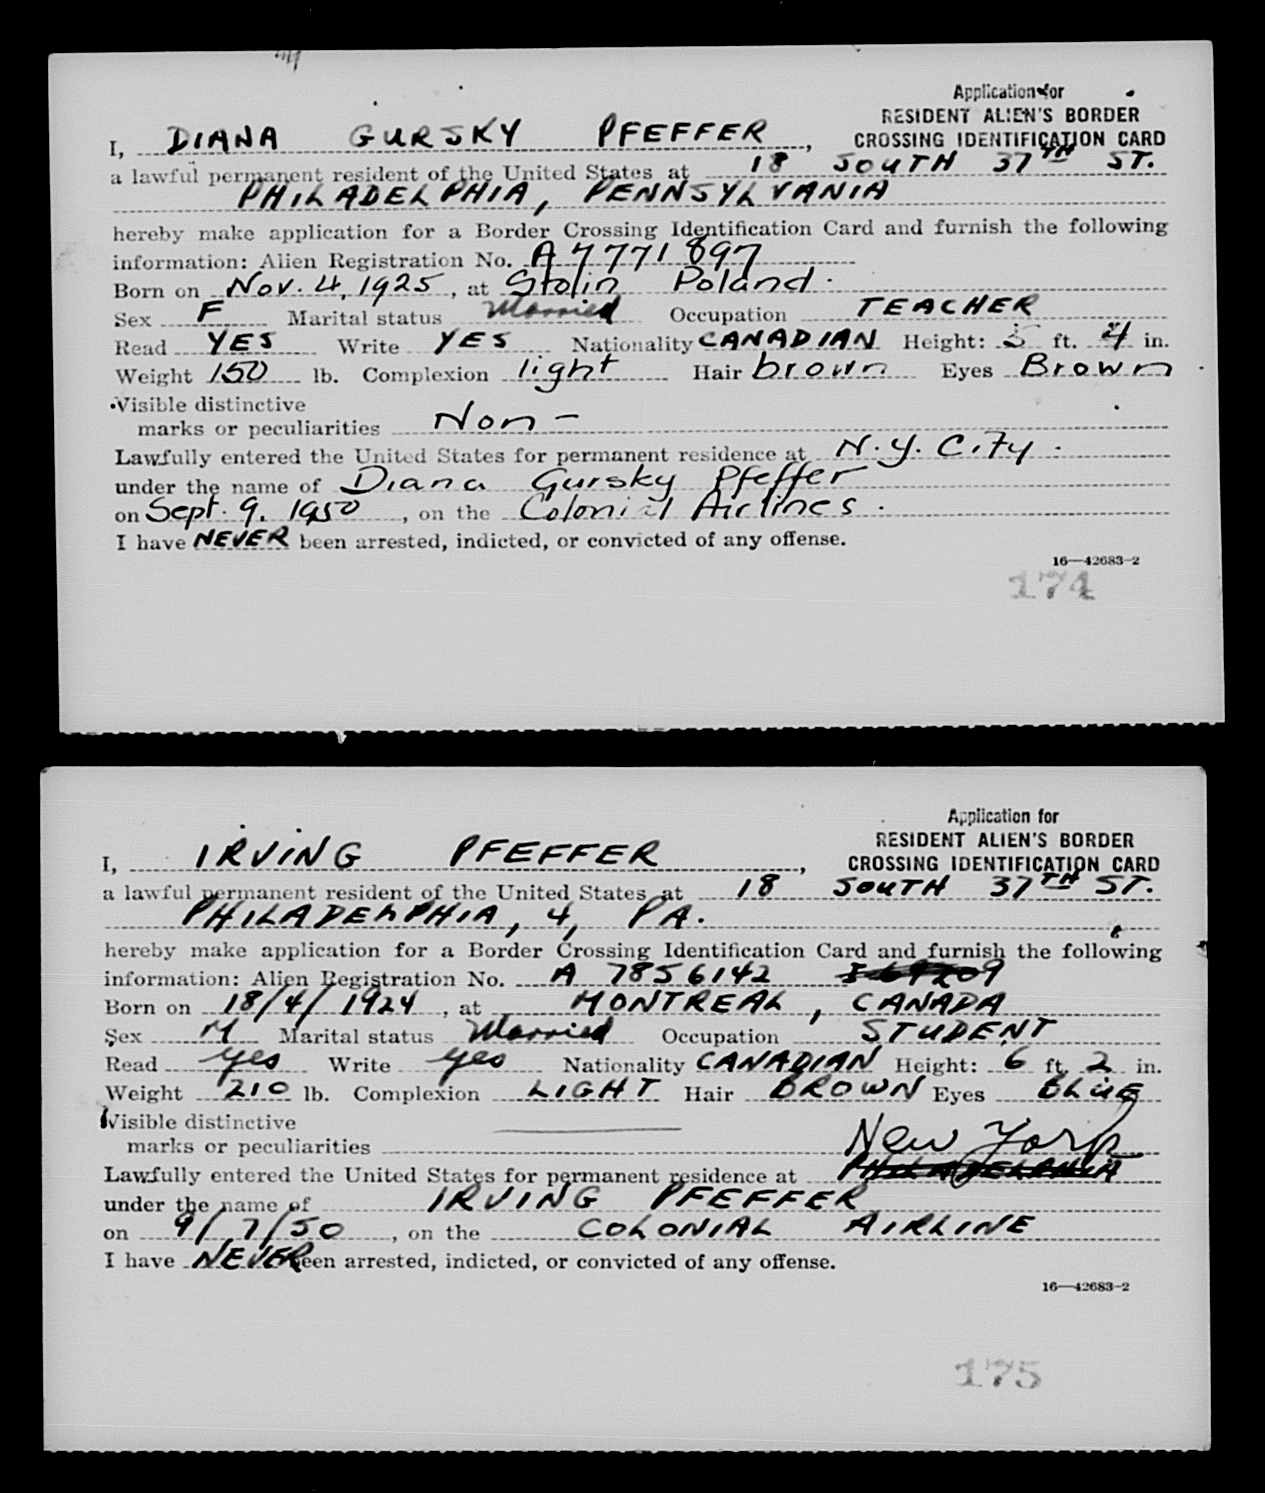 Application for
RESIDENT ALIEN'S BORDER
CROSSING IDENTIFICATION CARD
I, DIANA GURSKY PFEFFER,
a lawful permanent resident of the United States at 18 SOUTH 37TH ST.
PHILADELPHIA, PENNSYLVANIA
hereby make application for a Border Crossing Identification Card and furnish the following
information: Alien Registration No. A 7771897
Born on Nov. 4, 1925, at Stolin Poland.
Sex F Marital status Married Occupation TEACHER
Read YES Write YES Nationality CANADIAN Height: 5 ft. 4 in.
Weight 150 lb. Complexion light Hair brown Eyes Brown
Visible distinctive
marks or peculiarities Non -
Lawfully entered the United States for permanent residence at N.Y. City.
under the name of Diana Gursky Pfeffer
on Sept. 9, 1950, on the Colonial Airlines.
I have NEVER been arrested, indicted, or convicted of any offense.
16—42683-2
174
Application for
RESIDENT ALIEN'S BORDER
CROSSING IDENTIFICATION CARD
I, IRVING PFEFFER,
a lawful permanent resident of the United States at 18 SOUTH 37TH ST.
PHILADELPHIA, 4, PA.
hereby make application for a Border Crossing Identification Card and furnish the following
information: Alien Registration No. A 7856142
Born on 18/4/1924, at MONTREAL, CANADA
Sex M Marital status Married Occupation STUDENT
Read yes Write yes Nationality CANADIAN Height: 6 ft. 2 in.
Weight 210 lb. Complexion LIGHT Hair BROWN Eyes BLUE
Visible distinctive
marks or peculiarities
New York
Lawfully entered the United States for permanent residence at PHILADELPHIA
under the name of IRVING PFEFFER
on 9/7/50, on the COLONIAL AIRLINE
I have NEVER been arrested, indicted, or convicted of any offense.
16—42683-2
175